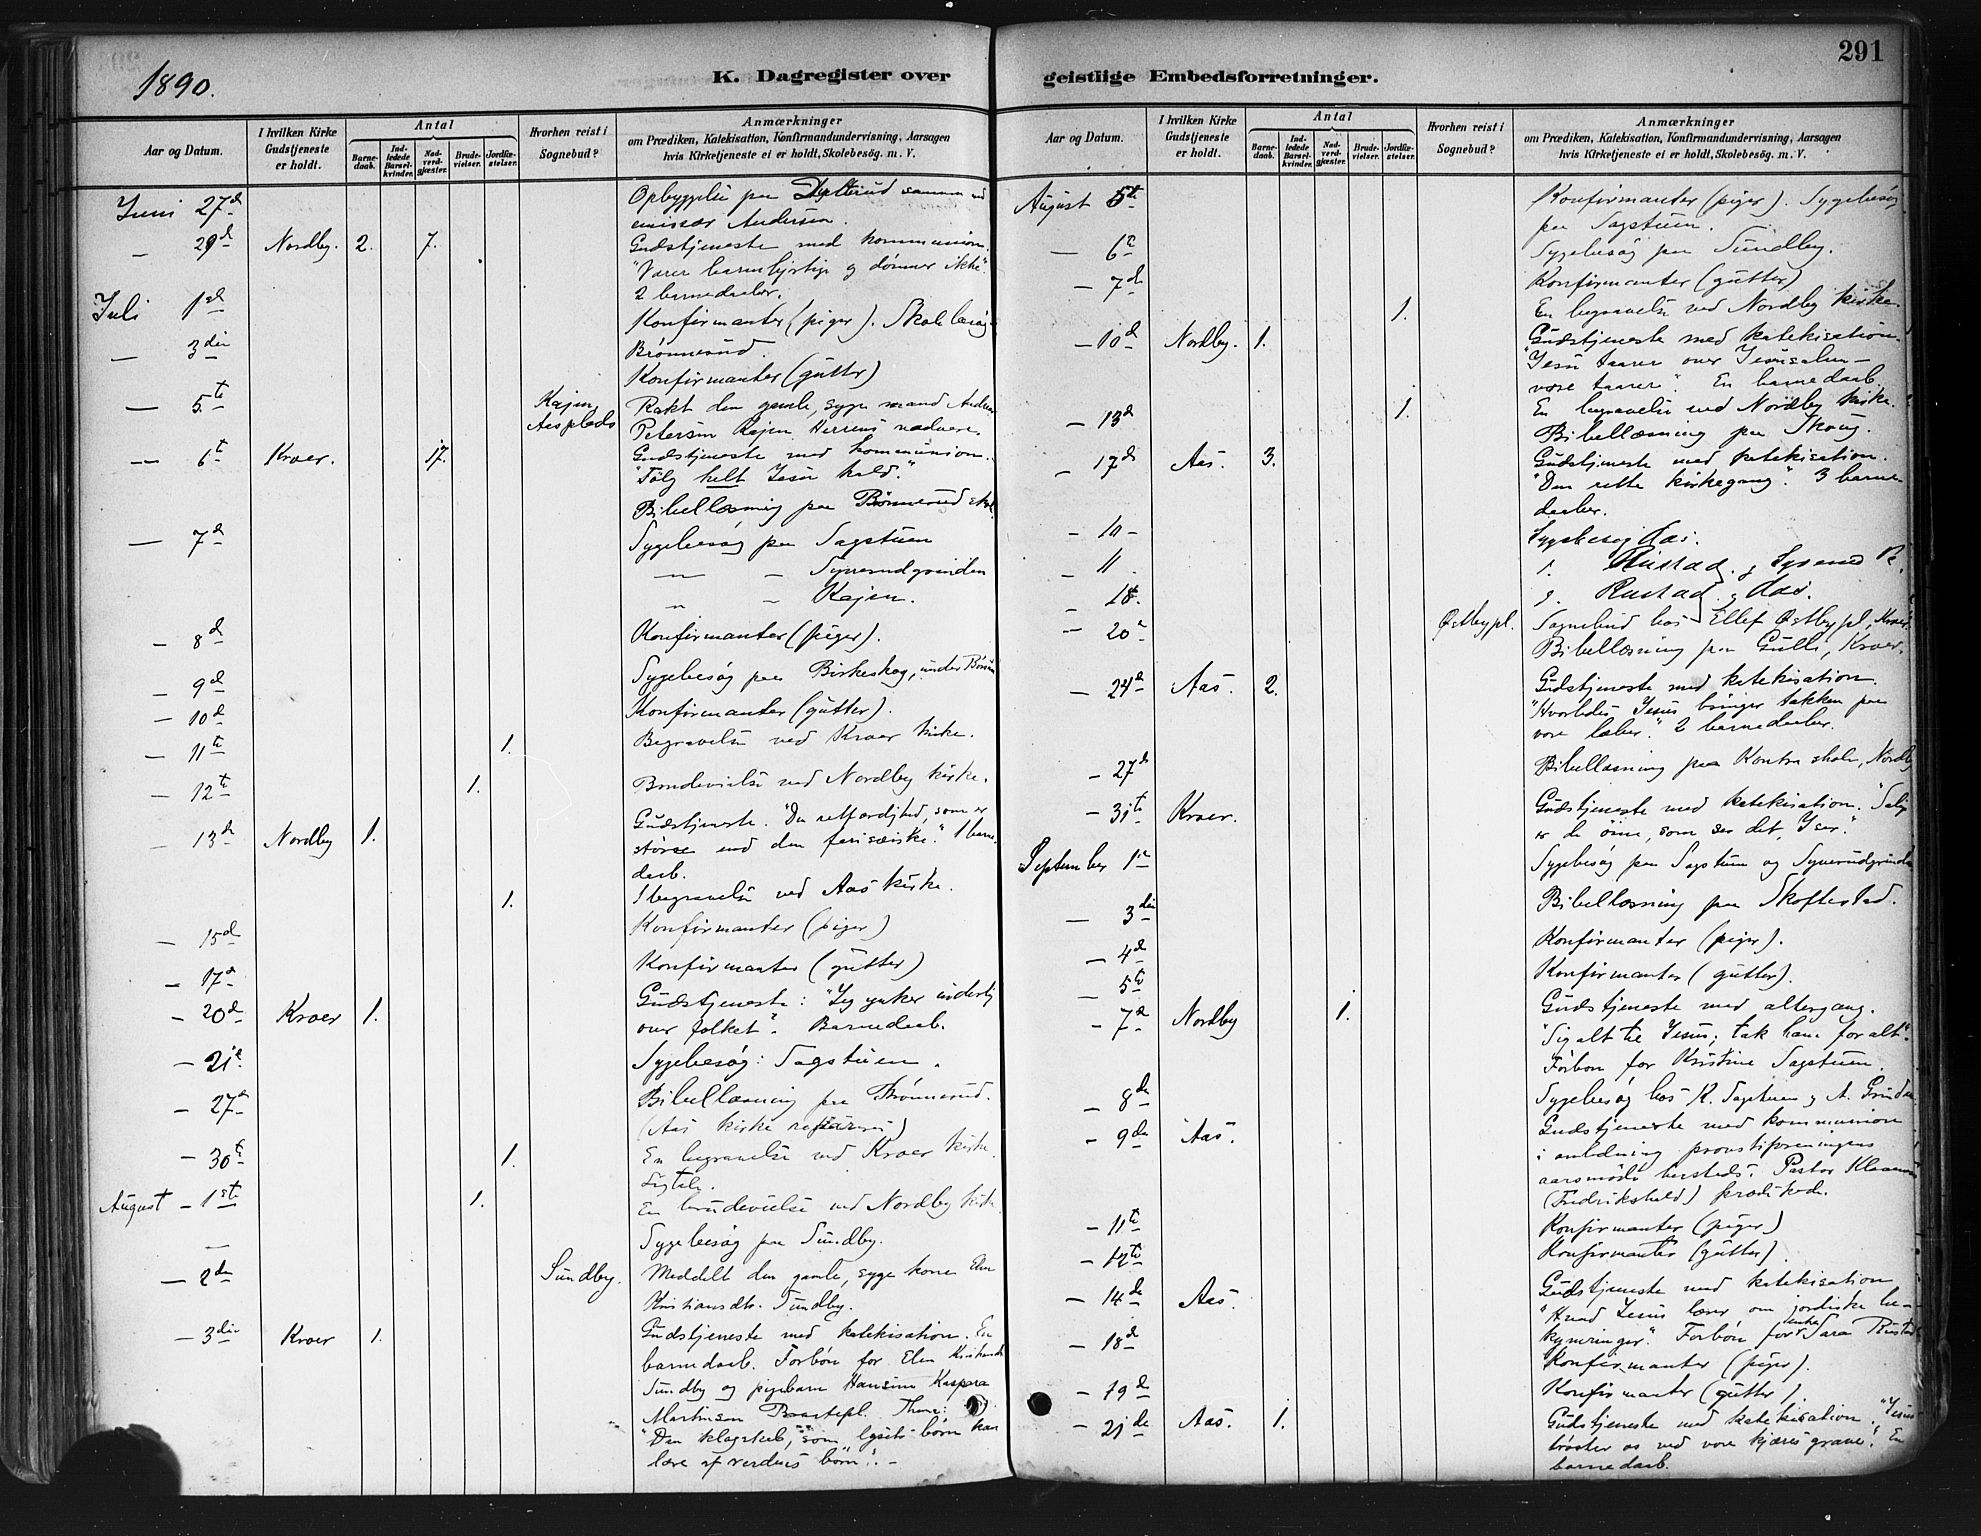 1890.
K. Dagregister over
Aar og Datum.
I hvilken Kirke Gudstjeneste er holdt.
Antal
Barnedaab.
Indledede Barselkvinder.
Nadverdgjæster.
Brudevielser.
Jordfæstelser.
Hvorhen reist i Sognebud?
Anmærkninger
om Prædiken, Katekisation, Konfirmandundervisning, Aarsagen
hvis Kirketjeneste ei er holdt, Skolebesøg. m. V.
Juni 27de Opbyggelse paa Dytterud sammen med
emissær Andersen.
— 29de Nordby. 2. 7. Gudstjeneste med kommunion.
"Værer barmhjertige og dømmer ikke".
2 barnedaaber.
Juli 1ste Konfirmanter (piger). Skolebesøg
Brønnerud.
— 3die Konfirmanter (gutter)
— 5te Kajen, Aasplads Rakt den gamle, syge mand Andreas
Petersen Kajen Herrens nadvere.
— 6te Kroer. 17. Gudstjeneste med kommunion.
"Følg helt Jesu kald."
Bibellæsning paa Brønnerud skole.
— 7de Sygebesøg paa Sagstuen
— " — Synerudgrinden
" — Kajen.
— 8de Konfirmanter (piger).
— 9de Sygebesøg paa Birkeskog, under
— 10de Konfirmanter (gutter).
— 11te 1. Begravelse ved Kroer kirke.
— 12te 1. Brudevielse ved Nordby kirke.
— 13de Nordby 1. Gudstjeneste. "Den retfærdighed, som er
større end den farisæiske." 1 barne-
daab.
1. 1 begravelse ved Aas kirke.
— 15de Konfirmanter (piger)
— 17de Konfirmanter (gutter)
— 20de Kroer 1. Gudstjeneste: "Jeg ynkes inderlig
over folket". Barnedaab.
— 21de Sygebesøg: Sagstuen.
— 27de Bibellæsning paa Brønnerud.
(Aas kirke repareres)
— 30te 1. En begravelse ved Kroer kirke.
August — 1ste 1. En brudevielse ved Nordby kirke
Sygebesøg paa Sundby.
— 2den Sundby. Meddelt den gamle, syge kone Elen
Kristiansdtr. Sundby.
— 3die Kroer 1. Gudstjeneste med katekisation. En
barnedaab. Forbøn for Elen Kristiansdtr
Sundby og pigebarn Hansine Kaspara
Martinsen Thema:
"Den klogskab, som lysets børn kan
lære af verdens børn". —
291
geistlige Embedsforretninger.
Aar og Datum.
I hvilken Kirke Gudstjeneste er holdt.
Antal
Barnedaab.
Indledede Barselkvinder.
Nadverdgjæster.
Brudevielser.
Jordfæstelser.
Hvorhen reist i Sognebud?
Anmærkninger
om Prædiken, Katekisation, Konfirmandundervisning, Aarsagen
hvis Kirketjeneste ei er holdt, Skolebesøg. m. V.
August 5te Konfirmanter (piger). Sygebesøg
paa Sagstuen.
— 6te Sygebesøg paa Sundby.
— 7de Konfirmanter (gutter)
1. En begravelse ved Nordby kirke.
— 10de Nordby. 1. Gudstjeneste med katekisation.
"Jesu taarer over Jerusalem —
vore taarer". En barnedaab.
— 13de 1. En begravelse ved Nordby kirke.
Bibellæsning paa Skoug.
— 17de Aas. 3. Gudstjeneste med katekisation.
"Den rette kirkegang." 3 barne-
daaber.
— 10 — Sygebesøg Aas.
— 11 Rustad
— 18. Rustad, Aas.
— 20de Østbypl. Sognebud hos Ellef Østbypl, Kroer.
Bibellæsning paa Gulli, Kroer.
— 24de Aas. 2. Gudstjeneste med katekisation.
"Hvorledes Jesus bringer takken paa
vore læber." 2 barnedaaber.
— 27de Bibellæsning paa Kontra skole, Nordby
— 31te Kroer. Gudstjeneste med katekisation. "Salige
er de øine, som ser det, I ser."
September 1ste Sygebesøg paa Sagstuen og Synerudgrinden
— 3die Bibellæsning paa Skoftestad.
— 4de Konfirmanter (piger).
— 5te Konfirmanter (gutter).
— 7de Nordby 1. Gudstjeneste med altergang.
"Sig alt til Jesus; tak ham for alt".
Forbøn for Kristine Sagstuen.
— 8de Sygebesøg hos K. Sagstuen og A. Grinden
— 9de Aas. Gudstjeneste med kommunion
i anledning provstiforeningens
aarsmøde hersteds. Pastor
(Fredrikshald) prædikede.
— 11te Konfirmanter (piger)
— 12te Konfirmanter (gutter)
— 14de Aas. Gudstjeneste med katekisation
"Hvad Jesus lærer om jordiske be-
kymringer." Forbøn for enke Sara Rustad
— 18de Konfirmanter (piger).
— 19de Konfirmanter (gutter).
— 21de Aas. 1. Gudstjeneste med katekisation. "Jesus
trøster os ved vore kjæres grave". En
barnedaab.